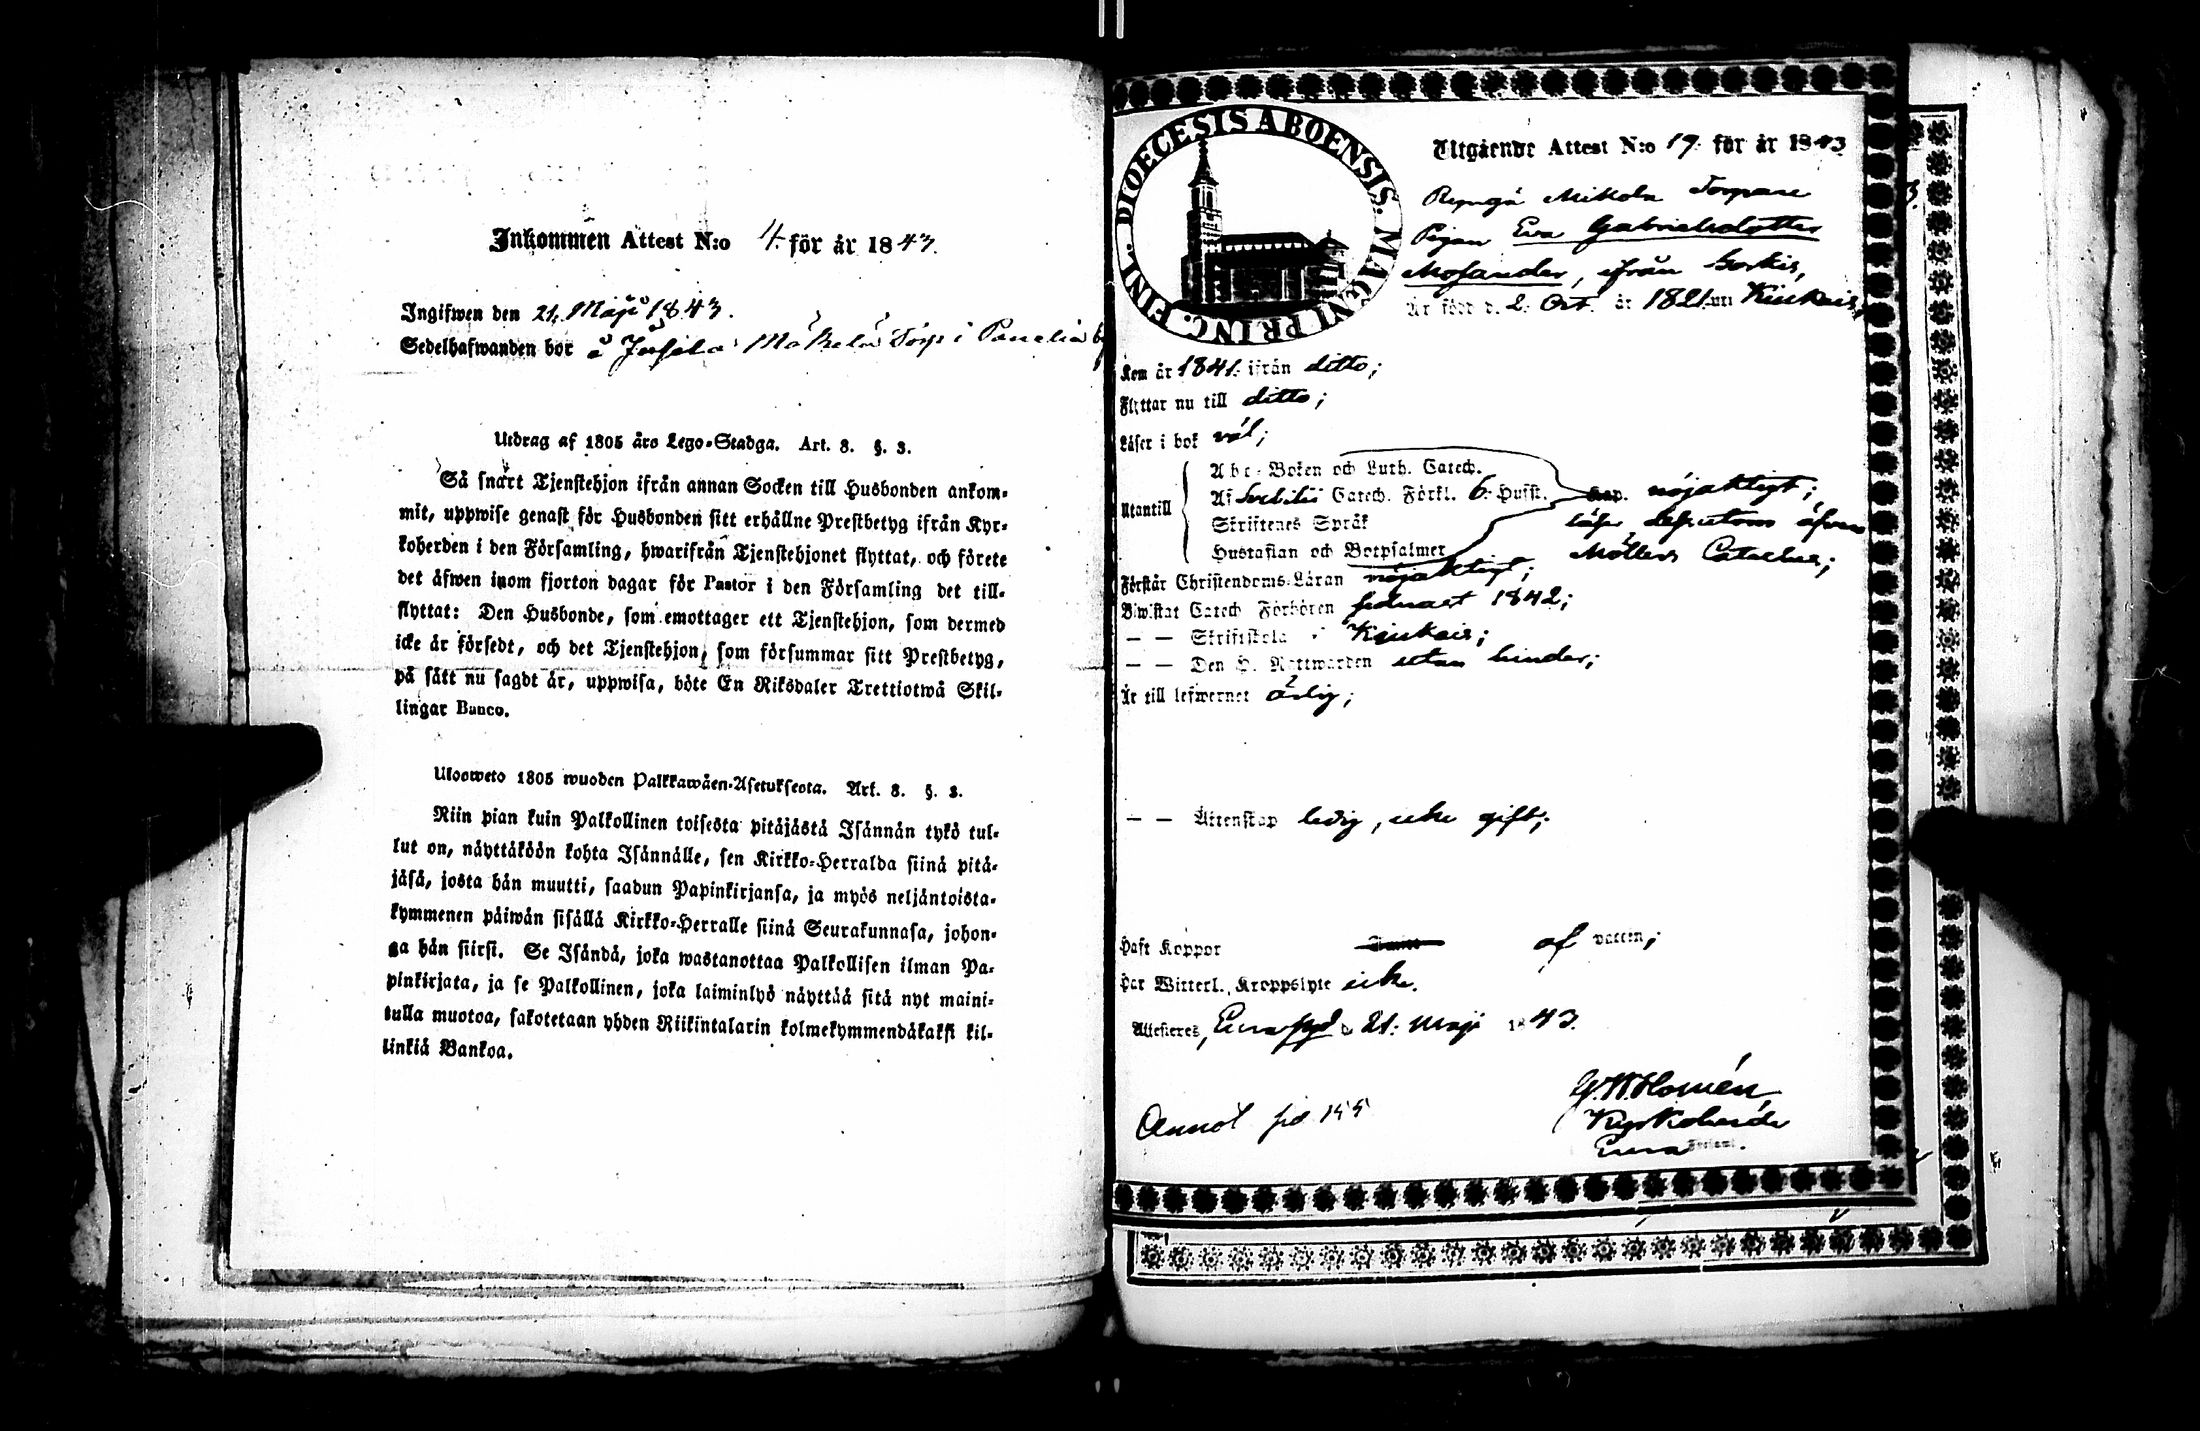 Inkommen Attest N:o 4. för år 1843.
Ingifwen den 21. Maji 1843.
Sedelhafwanden bor å Mäkelä Torp i Panelia
Utdrag af 1805 års Lego-Stadga. Art. 8. §. 3.
Så snart Tjenstehjon ifrån annan Socken till Husbonden ankom-
mit, uppwise genast för Husbonden sitt erhållne Prestbetyg ifrån Kyr-
koherden i den Församling, hwarifrån Tjenstehjonet flyttat, och förete
det äfwen inom fjorton dagar för Pastor i den Församling det till-
flyttat: Den Husbonde, som emottager ett Tjenstehjon, som dermed
icke är försedt, och det Tjenstehjon, som försummar sitt Prestbetyg,
på sätt nu sagdt är, uppwisa, böte En Riksdaler Trettiotwå Skil-
lingar Banco.
Ulosweto 1805 wuoden Palkkawäen-Asetuksesta. Art. 8. §. 3.
Niin pian kuin Palkollinen toisesta pitäjästä Isännän tykö tul-
lut on, näyttäköön kohta Isännälle, sen Kirkko-Herralda siinä pitä-
jäsä, josta hän muutti, saadun Papinkirjansa, ja myös neljäntoista-
kymmenen päiwän sisällä Kirkko-Herralle siinä Seurakunnasa, johon-
ga hän siirsi. Se Isändä, joka wastanottaa Palkollisen ilman Pa-
pinkirjata, ja se Palkollinen, joka laiminlyö näyttää sitä nyt maini-
tulla muotoa, sakotetaan yhden Riikintalarin kolmekymmendäkaksi kil-
linkiä Bankoa.
DIOECESIS ABOENSIS. MAGNI PRINC. FINL.
Utgående Attest N:o 19. för år 1843
Mikola Torpare
Pigan Eva Gabrielsdotter
Mosander, ifrån
Är född d. 2. Oct. år 1821. uti Kiukais,
Kom år 1841. ifrån ditto;
Flyttar nu till ditto;
Läser i bok väl;
Utantill
Abc-Boken och Luth. Catech.
Af Svebilii Catech. Förkl. 6. Hufst. Kap. nöjaktigt;
Skriftenes Språk läser dessutom äfven
Hustaflan och Botpsalmer Möllers Cateches;
Förstår Christendoms-Läran nöjaktigt;
Biwistat Catech Förhören sednast 1842;
— — Skriftskola i Kiukais;
— — Den H. Nattwarden utan hinder;
Är till lefwernet ärlig;
— — Äktenskap ledig, icke gift;
Haft Koppor af vaccin;
Har Witterl. Kroppslyte icke.
Attesteres, Eura d. 21. Maji 1843.
G. W. Homén
Kyrkoherde
Eura Församl.
Annot. pag 155